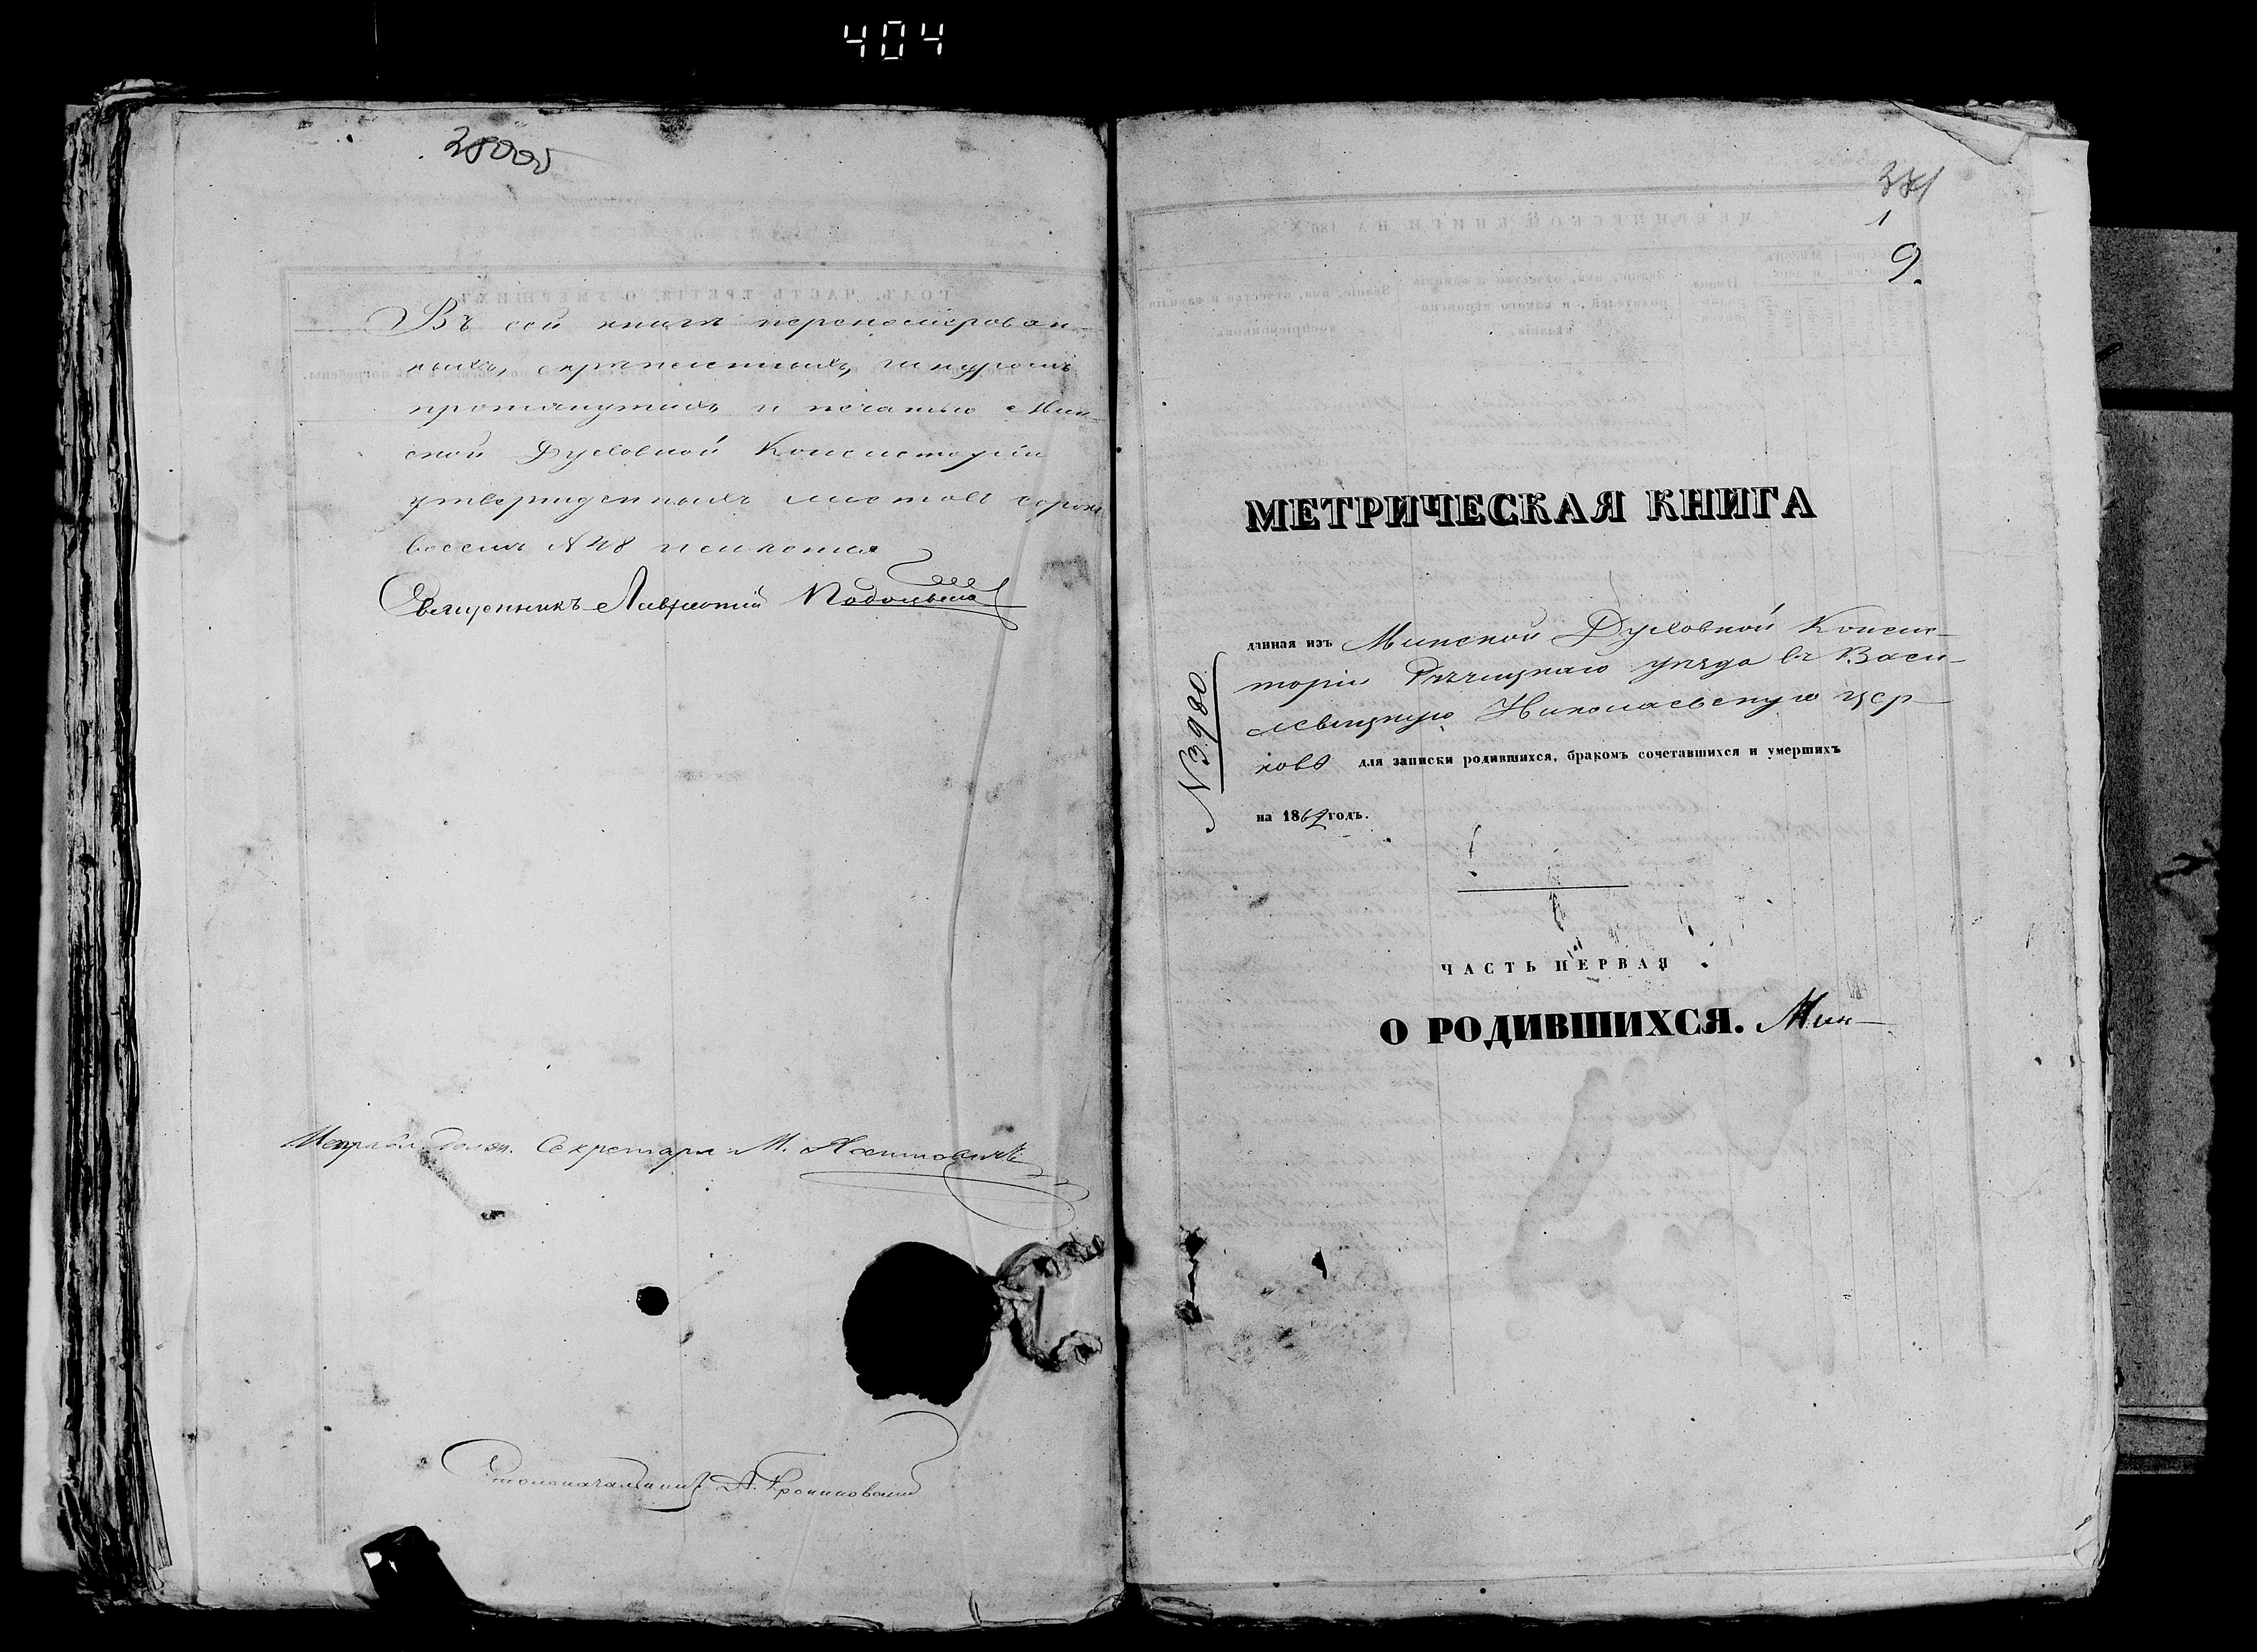 404
Въ сей книгѣ переномерован-
ныхъ, скрѣпленныхъ, шнуромъ
протянутыхъ и печатью Мин-
ской Духовной Консисторіи
утвержденныхъ листовъ сорокъ
восемь № 48
Священникъ Лаврентій
Секретаря М.
Столоначальникъ А.
371
1
9.
МЕТРИЧЕСКАЯ КНИГА
данная изъ Минской Духовной Консис-
торіи Рѣчицкаго уѣзда въ Васи-
левицкую Николаевскую цер-
ковь для записки родившихся, бракомъ сочетавшихся и умершихъ
№ 3980
на 1862 годъ.
ЧАСТЬ ПЕРВАЯ
О РОДИВШИХСЯ. Мин-